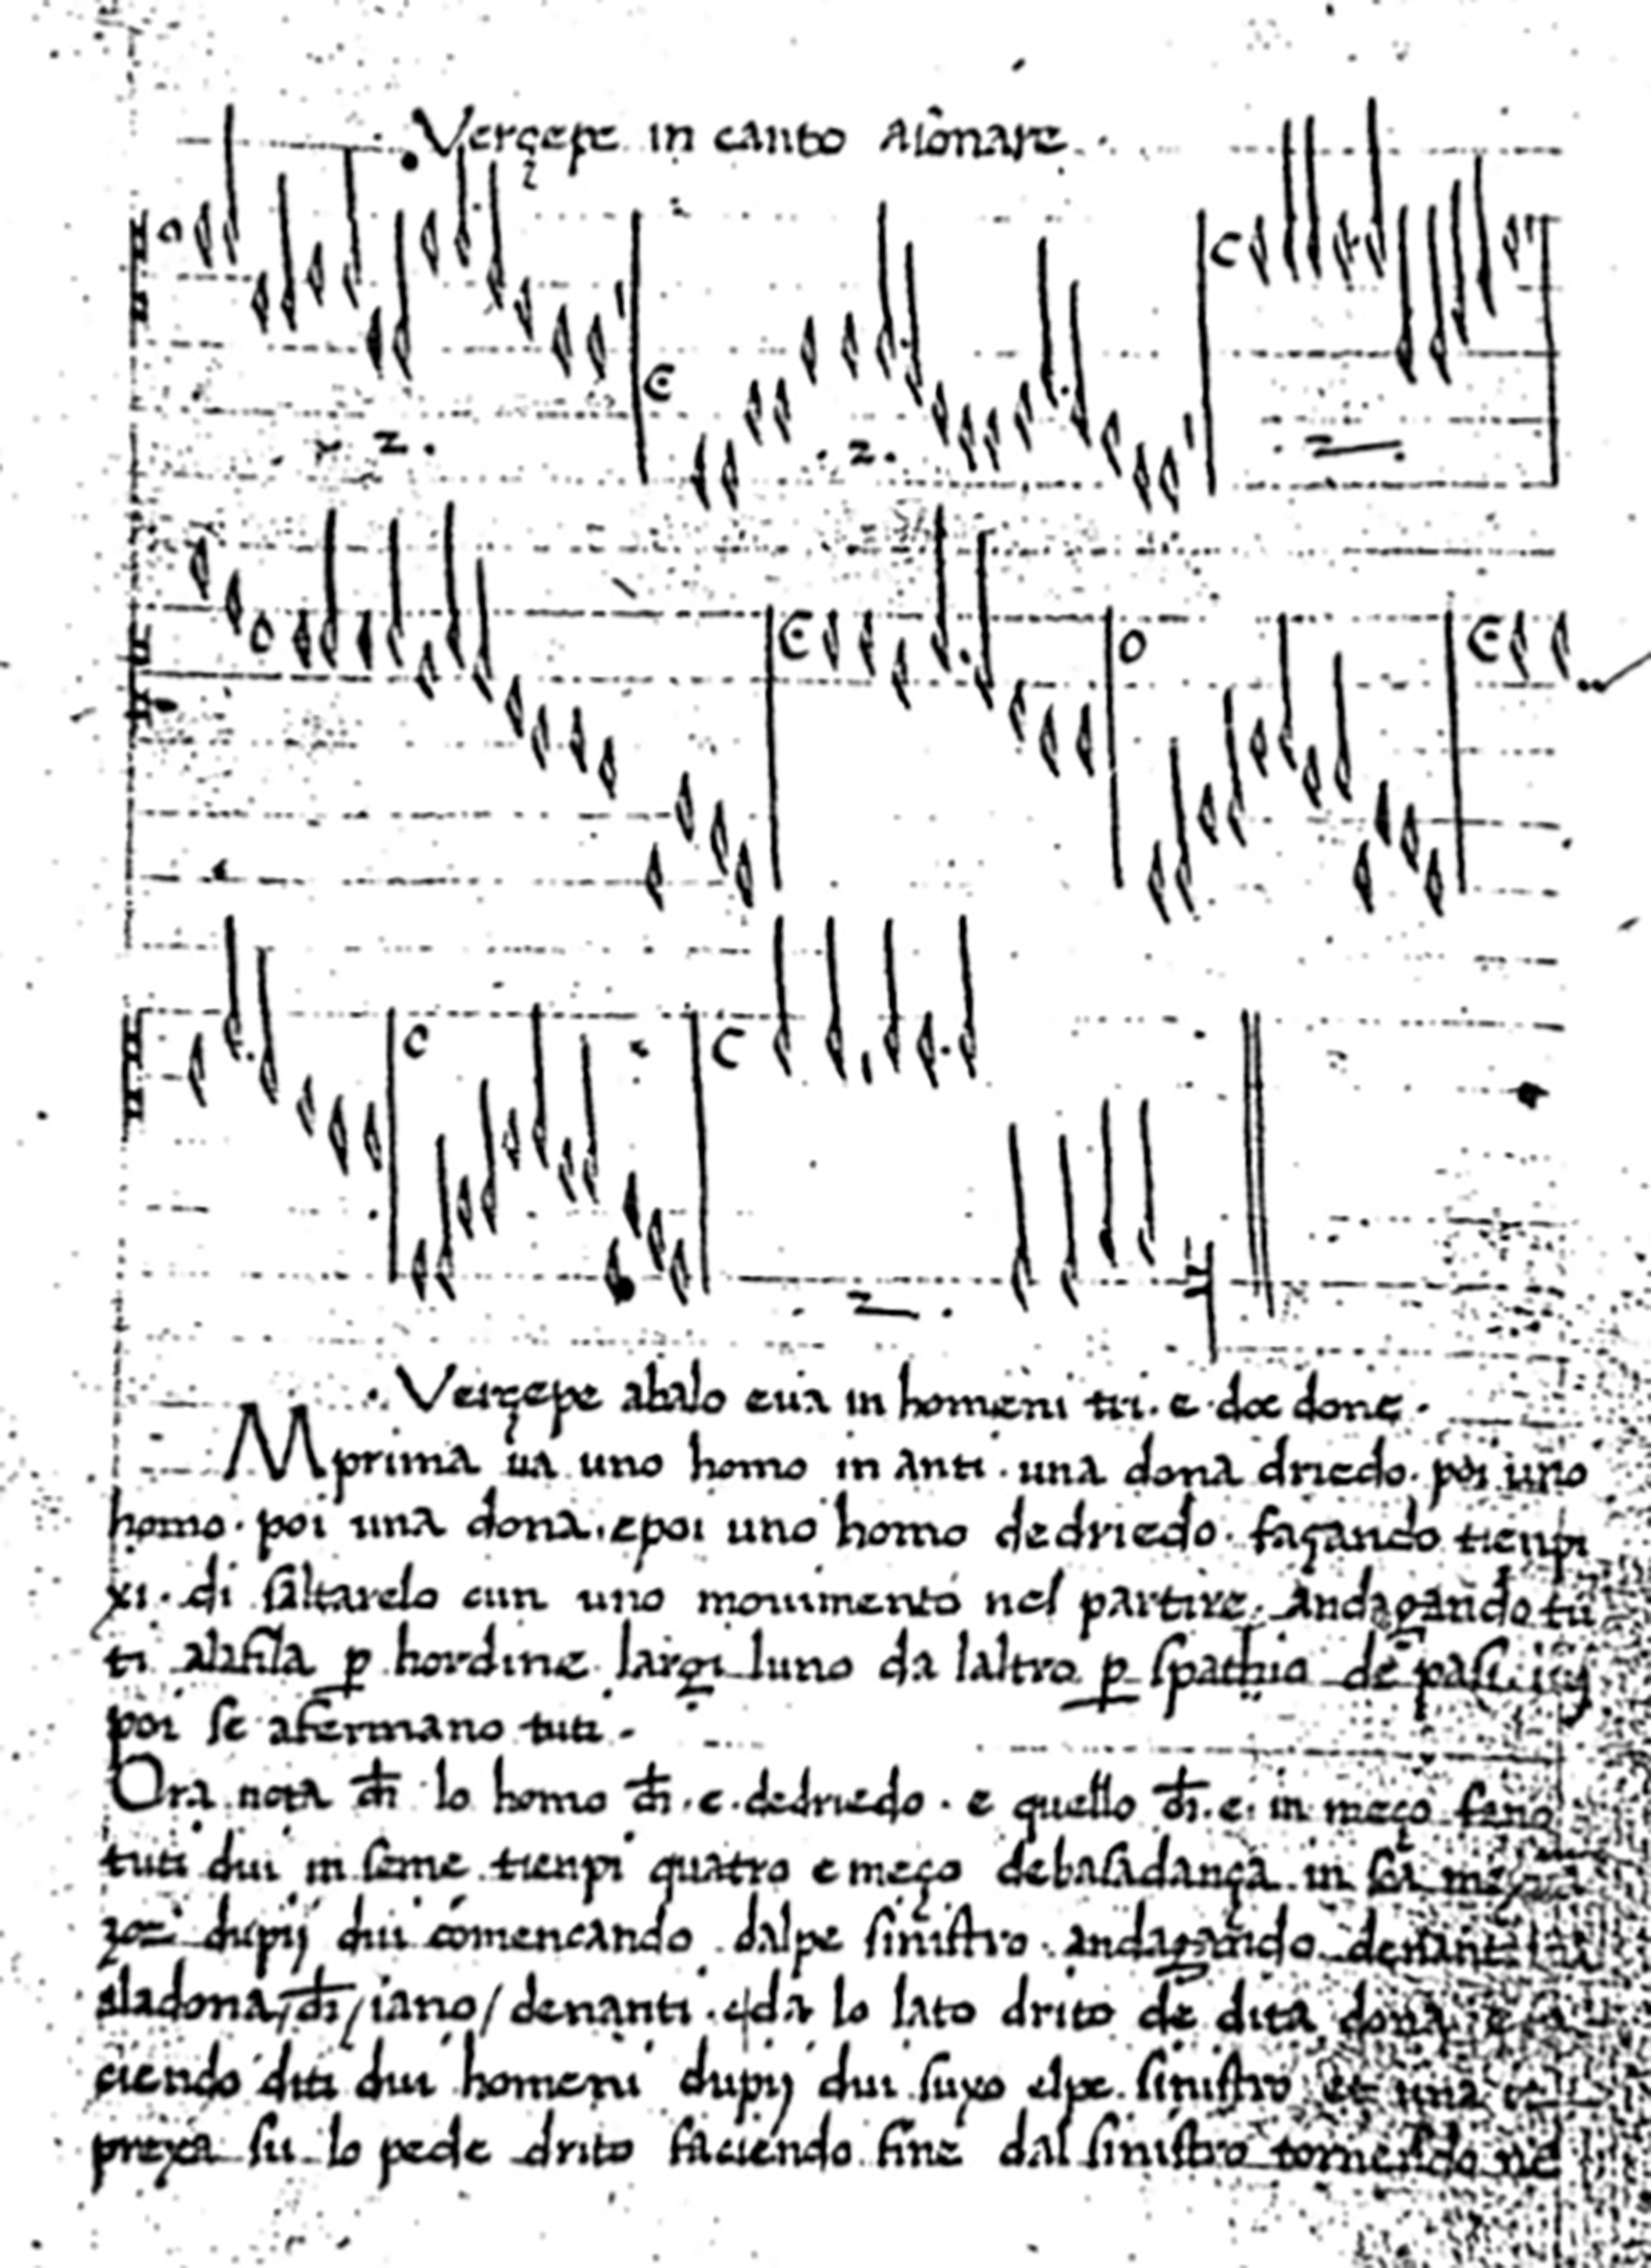 Verçepe in canto Asonare ·
· 2 ·
· 2 ·
· Verçepe abalo eua in homeni tri · e · doe done ·
IN prima ua uno homo in anti · una dona driedo · poi uno
homo · poi una dona · epoi uno homo dedriedo · façando tienpi
xi · di saltarelo cun uno mouimento nel partire · andagando tu
ti alafila p hordine largi luno da laltro p spathio de pasi iij
poi se afermano tuti ·
Ora nota ch lo homo ch · e · dedriedo · e quello ch · e · in meço fano
tuti dui inseme tienpi quatro e meço debasadança in
zoe dupij dui comencando dalpe sinistro · andagando denanti
aladona denanti · eda lo lato drito de dita dona
ciendo diti dui homeni dupij dui suxo elpe sinistro et una
prexa su lo pede drito faciendo fine dal sinistro tornando